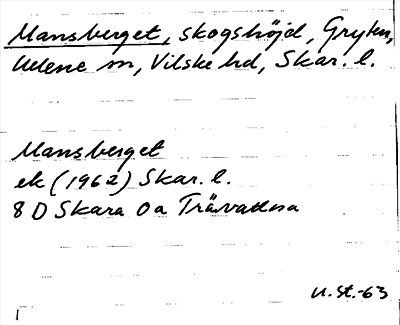 Mansberget, skogshöjd, Gryten,
Uelene sn, Vilske hd, Skar. l.
Mansberget
ek (1962) Skar. l.
8 D Skara 0a Trävattna
U. St. -63